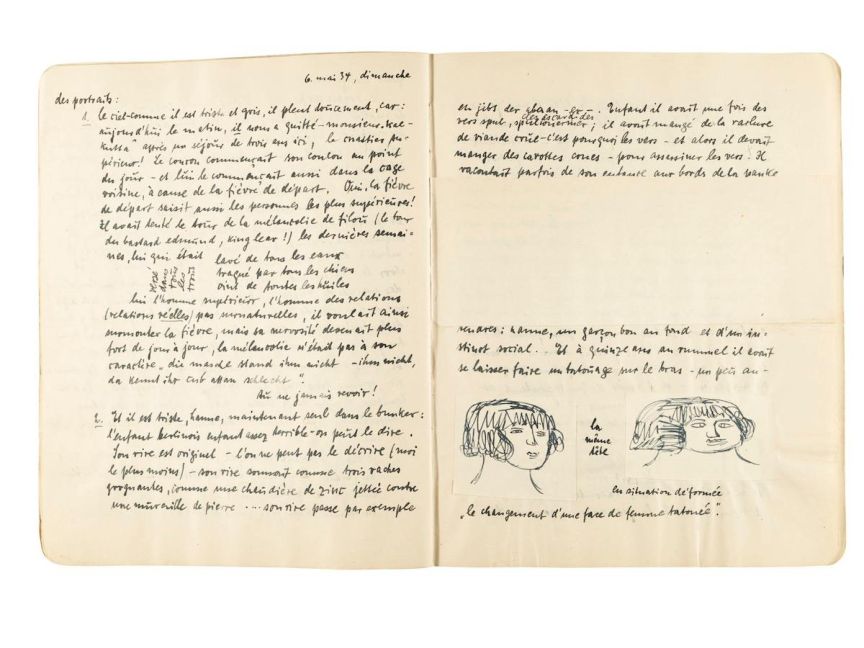 6. mai 34, dimanche
des portraits:
1. le ciel-comme il est triste et gris, il pleut doucement, car:
aujourd'hui le matin, il nous a quitté-monsieur
après un séjour de trois ans ici, le
périeur! Le coucou commençait son coulou au point
du jour - et lui le commençait aussi dans la cage
voisine, à cause de la fièvre de départ. Oui, la fièvre
de départ saisit aussi les personnes les plus supérieures!
Il avait tenté le tour de la mélancolie de filou (le tour
du bastard edmund, king lear!) les dernières semai-
nes, lui qui était
lavé de tous les eaux
traqué par tous les chiens
oint de toutes les huiles
dans
tous
les
trous
lui l'homme supérieur, l'homme des relations
(relations réelles) pas surnaturelles, il voulait ainsi
surmonter la fièvre, mais sa nervosité devenait plus
fort de jour à jour, la mélancolie n'était pas à son
caractère „die maske stand ihm nicht - ihm nicht,
da kennt ihr schlecht".
Au ne jamais revoir!
2. Et il est triste, hanne, maintenant seul dans le bunker:
l'enfant berlinois enfant assez terrible-on peut le dire.
Son rire est originel - l'on ne peut pas le décrire (moi
le plus moins) - son rire comme trois vaches
grognantes, comme une chaudière de zinc jettée contre
une muraille de pierre .... son rire passe par exemple
en jibs der - er -. Enfant il avait une fois des
vers spul, spulwürmer; il avait mangé de la raclure
des ascarides
de viande crue-c'est pourquoi les vers - et alors il devait
manger des carottes crues - pour assassiner les vers. Il
racontait parfois de son enfance aux bords de la panke
hanne, un garçon bon au fond et d'un in-
stinct social... Et à quinze ans au rummel il avait
se laisser faire un tatouage sur le bras - un peu au-
la
même
tête
en situation déformée
„le changement d'une face de femme tatouée".